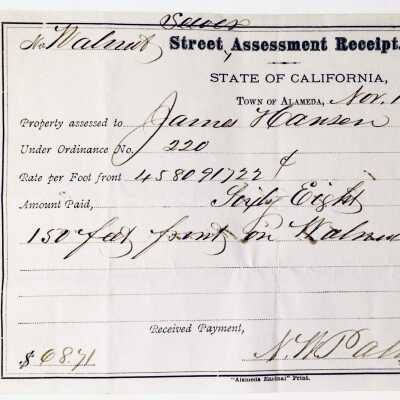 Sewer
No Walnut Street, Assessment Receipt.
STATE OF CALIFORNIA,
TOWN OF ALAMEDA, Nov. 1
Property assessed to James Hansen
Under Ordinance No. 220
Rate per Foot front 458091722 ¢
Amount Paid, Sixty Eight
150 feet front on Walnu
Received Payment,
$ 68.71 N. W. Pal
"Alameda Encinal" Print.